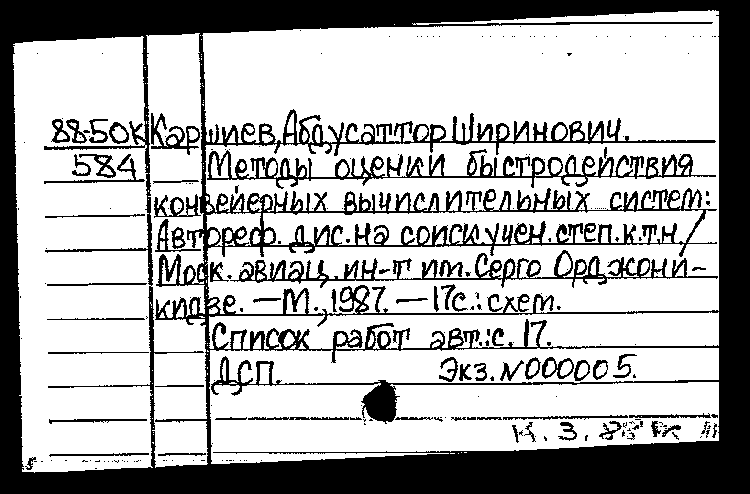 88-50к Каршиев, Абдусаттор Ширинович.
584 Методы оценки быстродействия
конвейерных вычислительных систем:
Автореф. дис. на соиск. учен. степ. к.т.н./
Моск. авиац. ин-т им. Серго Орджони-
кидзе. — М., 1987. — 17с.: схем.
Список работ авт.: с. 17.
ДСП. Экз. N000005.
К. 3. 88